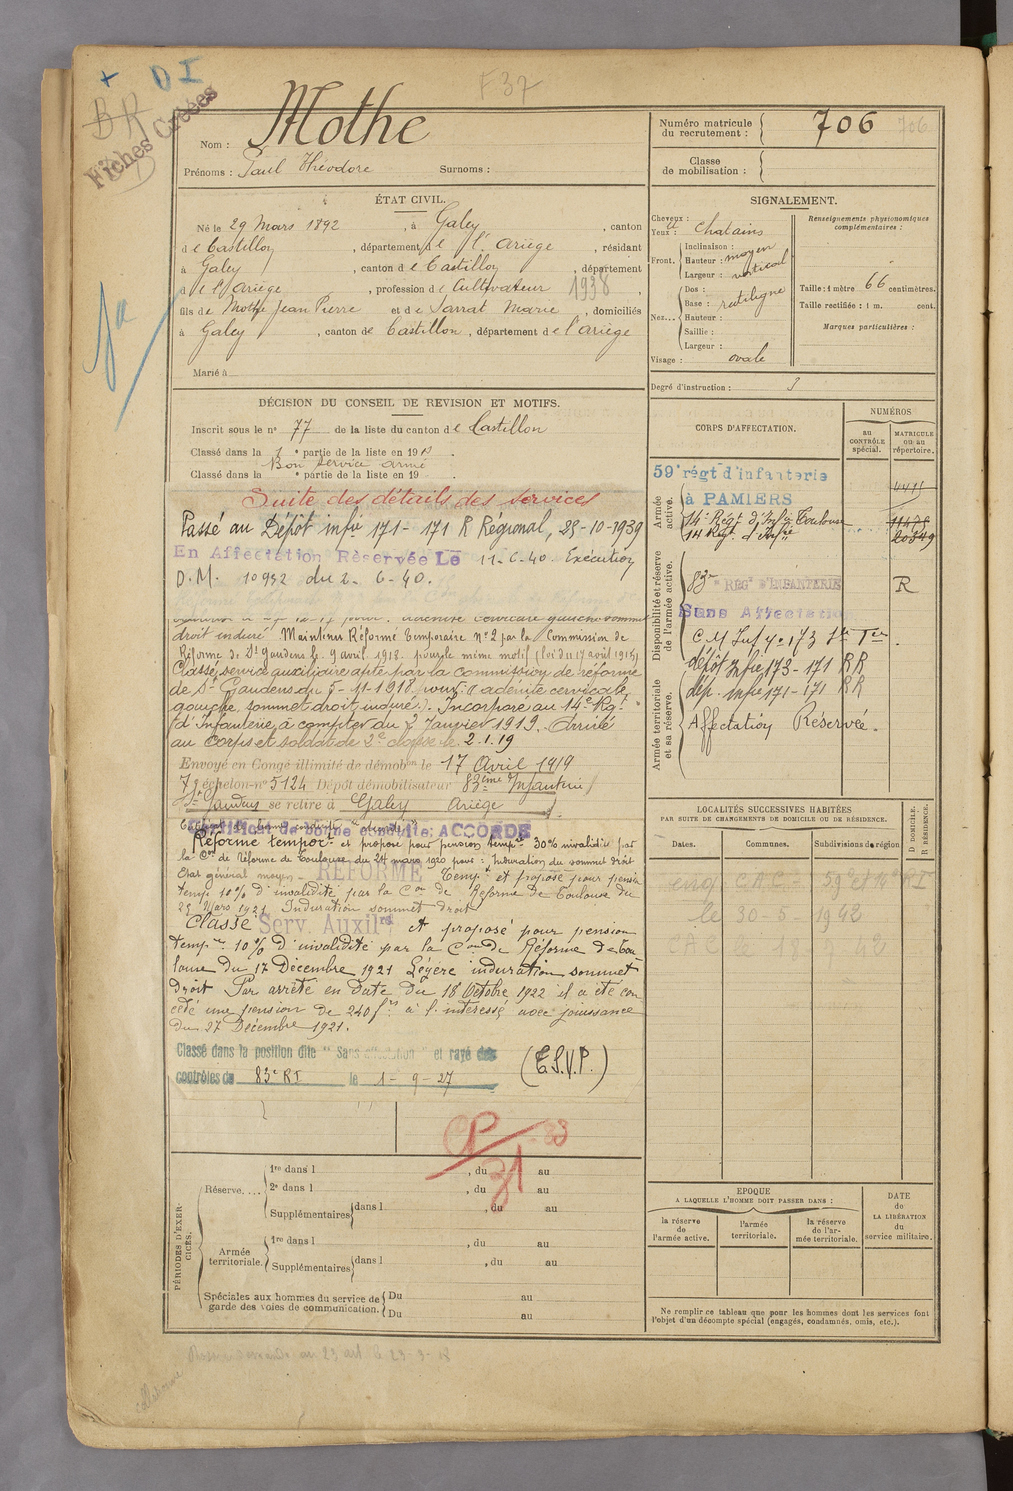 + D I
F 37
BR
Fiches Créées
Nom : Mothe
Prénoms : Paul Théodore Surnoms :
Numéro matricule du recrutement : 706 706
Classe de mobilisation :
ÉTAT CIVIL.
Né le 29 Mars 1892, à Galey, canton
de Castillon, département de l'Ariège, résidant
à Galey, canton de Castillon, département
de l'Ariège, profession de Cultivateur 1938,
fils de Mothe Jean Pierre et de Sarrat Marie, domiciliés
à Galey, canton de Castillon, département de l'Ariège
Marié à
SIGNALEMENT.
Cheveux : et
Yeux : chatains
Front. Inclinaison : moyen
Hauteur :
Largeur : vertical
Nez... Dos :
Base : rectiligne
Hauteur :
Saillie :
Largeur :
Visage : ovale
Renseignements physionomiques complémentaires :
Taille : 1 mètre 66 centimètres.
Taille rectifiée : 1 m. cent.
Marques particulières :
Degré d'instruction : 3
DÉCISION DU CONSEIL DE REVISION ET MOTIFS.
Inscrit sous le n° 77 de la liste du canton de Castillon
Classé dans la 1e partie de la liste en 1913.
Bon service armé
Classé dans la e partie de la liste en 19
Suite des détails des services
Passé au Dépôt infie 171 - 171 R Régional, 25-10-1939
En Affectation Réservée Le 11-6-40 Exécution
D.M. 10932 du 2-6-40.
droit induré. Maintenu Réformé temporaire N° 2 par la Commission de
Réforme de St Gaudens le 9 avril 1918 pour le même motif (loi du 17 août 1915)
Classé service auxiliaire apte par la commission de réforme
de St Gaudens du 5-11-1918 pour adénite cervicale
gauche, sommet droit induré). Incorporé au 14e Rgt
d'Infanterie à compter du 2 Janvier 1919. Arrivé
au corps et soldat de 2e classe le 2.1.19
Envoyé en Congé illimité de démobon le 17 Avril 1919
7e échelon-n° 5124 Dépôt démobilisateur 83ème Infanterie
St Gaudens se retire à Galey Ariège
Certificat de bonne conduite: ACCORDÉ
Réformé tempore et proposé pour pension tempre 30% invalidité par
la Con de Réforme de Toulouse du 24 mars 1920 pour : Induration du sommet droit
Etat général moyen - RÉFORMÉ Tempre et proposé pour pension
tempre 10% d'invalidité par la Con de Réforme de Toulouse du
25 Mars 1921 Induration sommet droit
Classé Serv. Auxilre et proposé pour pension
tempre 10% d'invalidité par la Con de Réforme de Tou
louse du 17 Décembre 1921 Légère induration sommet
droit Par arrêté en date du 18 Octobre 1922 il a été con
cédé une pension de 240 frs à l'intéressé avec jouissance
du 27 Décembre 1921.
Classé dans la position dite "Sans affectation" et rayé des
contrôles du 83e RI le 1-9-27
(T.S.V.P.)
CORPS D'AFFECTATION.
NUMÉROS
au CONTRÔLE spécial.
MATRICULE ou au répertoire.
Armée active.
59e régt d'infanterie
à PAMIERS
14e Régt d'Infie Toulouse 11475
14 Régt d'Infie 20549
Disponibilité et réserve de l'armée active.
83e REGt D'INFANTERIE R
Sans Affectation
dépôt Infie 173 - 171 RR
Armée territoriale et sa réserve.
dép. infie 171 - 171 RR
Affectation Réservée.
LOCALITÉS SUCCESSIVES HABITÉES
PAR SUITE DE CHANGEMENTS DE DOMICILE OU DE RÉSIDENCE.
D. DOMICILE. R RÉSIDENCE.
Dates. Communes. Subdivisions de région
le 30-5-1942
CP
31
PÉRIODES D'EXERCICES.
Réserve.... 1re dans l , du au
2e dans l , du au
Supplémentaires dans l , du au
Armée territoriale. 1re dans l , du au
Supplémentaires dans l , du au
Spéciales aux hommes du service de garde des voies de communication. Du au
Du au
EPOQUE
A LAQUELLE L'HOMME DOIT PASSER DANS :
la réserve de l'armée active.
l'armée territoriale.
la réserve de l'armée territoriale.
DATE de LA LIBÉRATION du service militaire.
Ne remplir ce tableau que pour les hommes dont les services font
l'objet d'un décompte spécial (engagés, condamnés, omis, etc.).